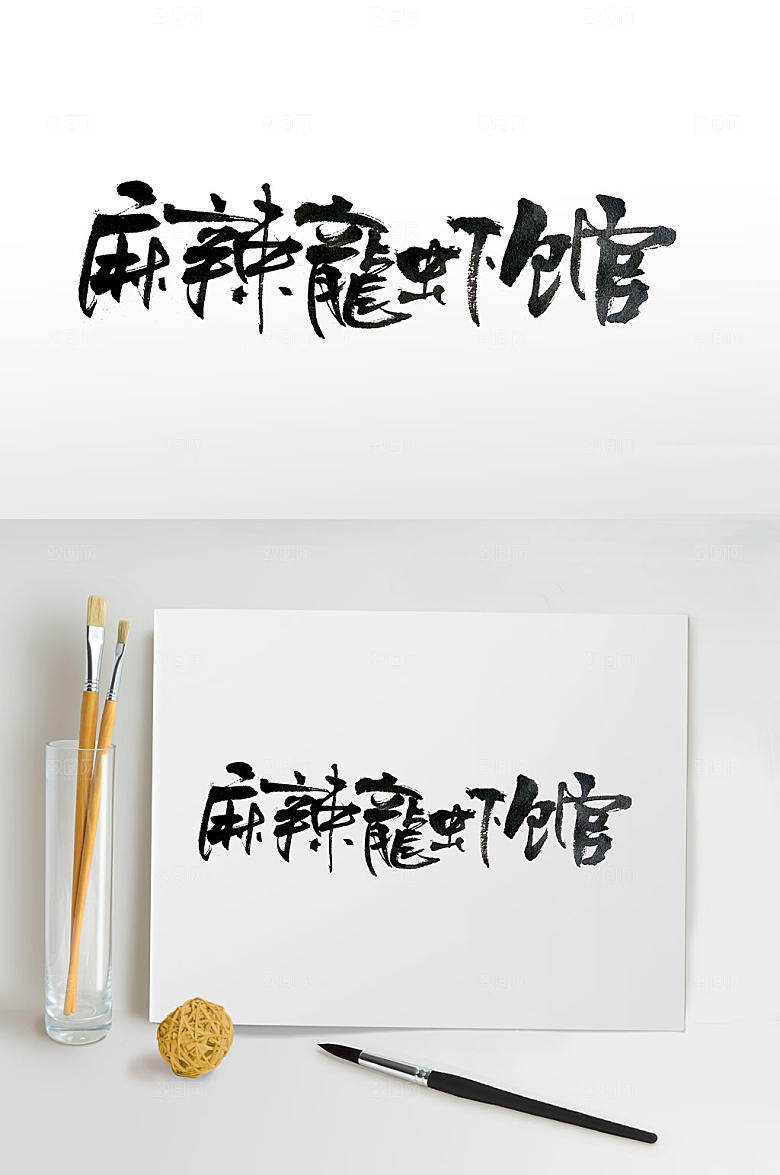 麻辣龍虾馆
麻辣龍虾馆